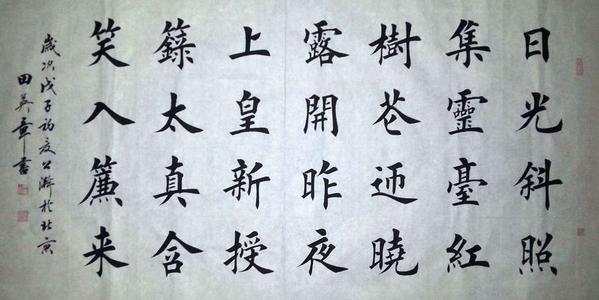 日光斜照
集靈臺紅
樹花迎曉
露開昨夜
上皇新授
籙太真含
笑入簾来
歲次戊子初夏 於北京
田英章書